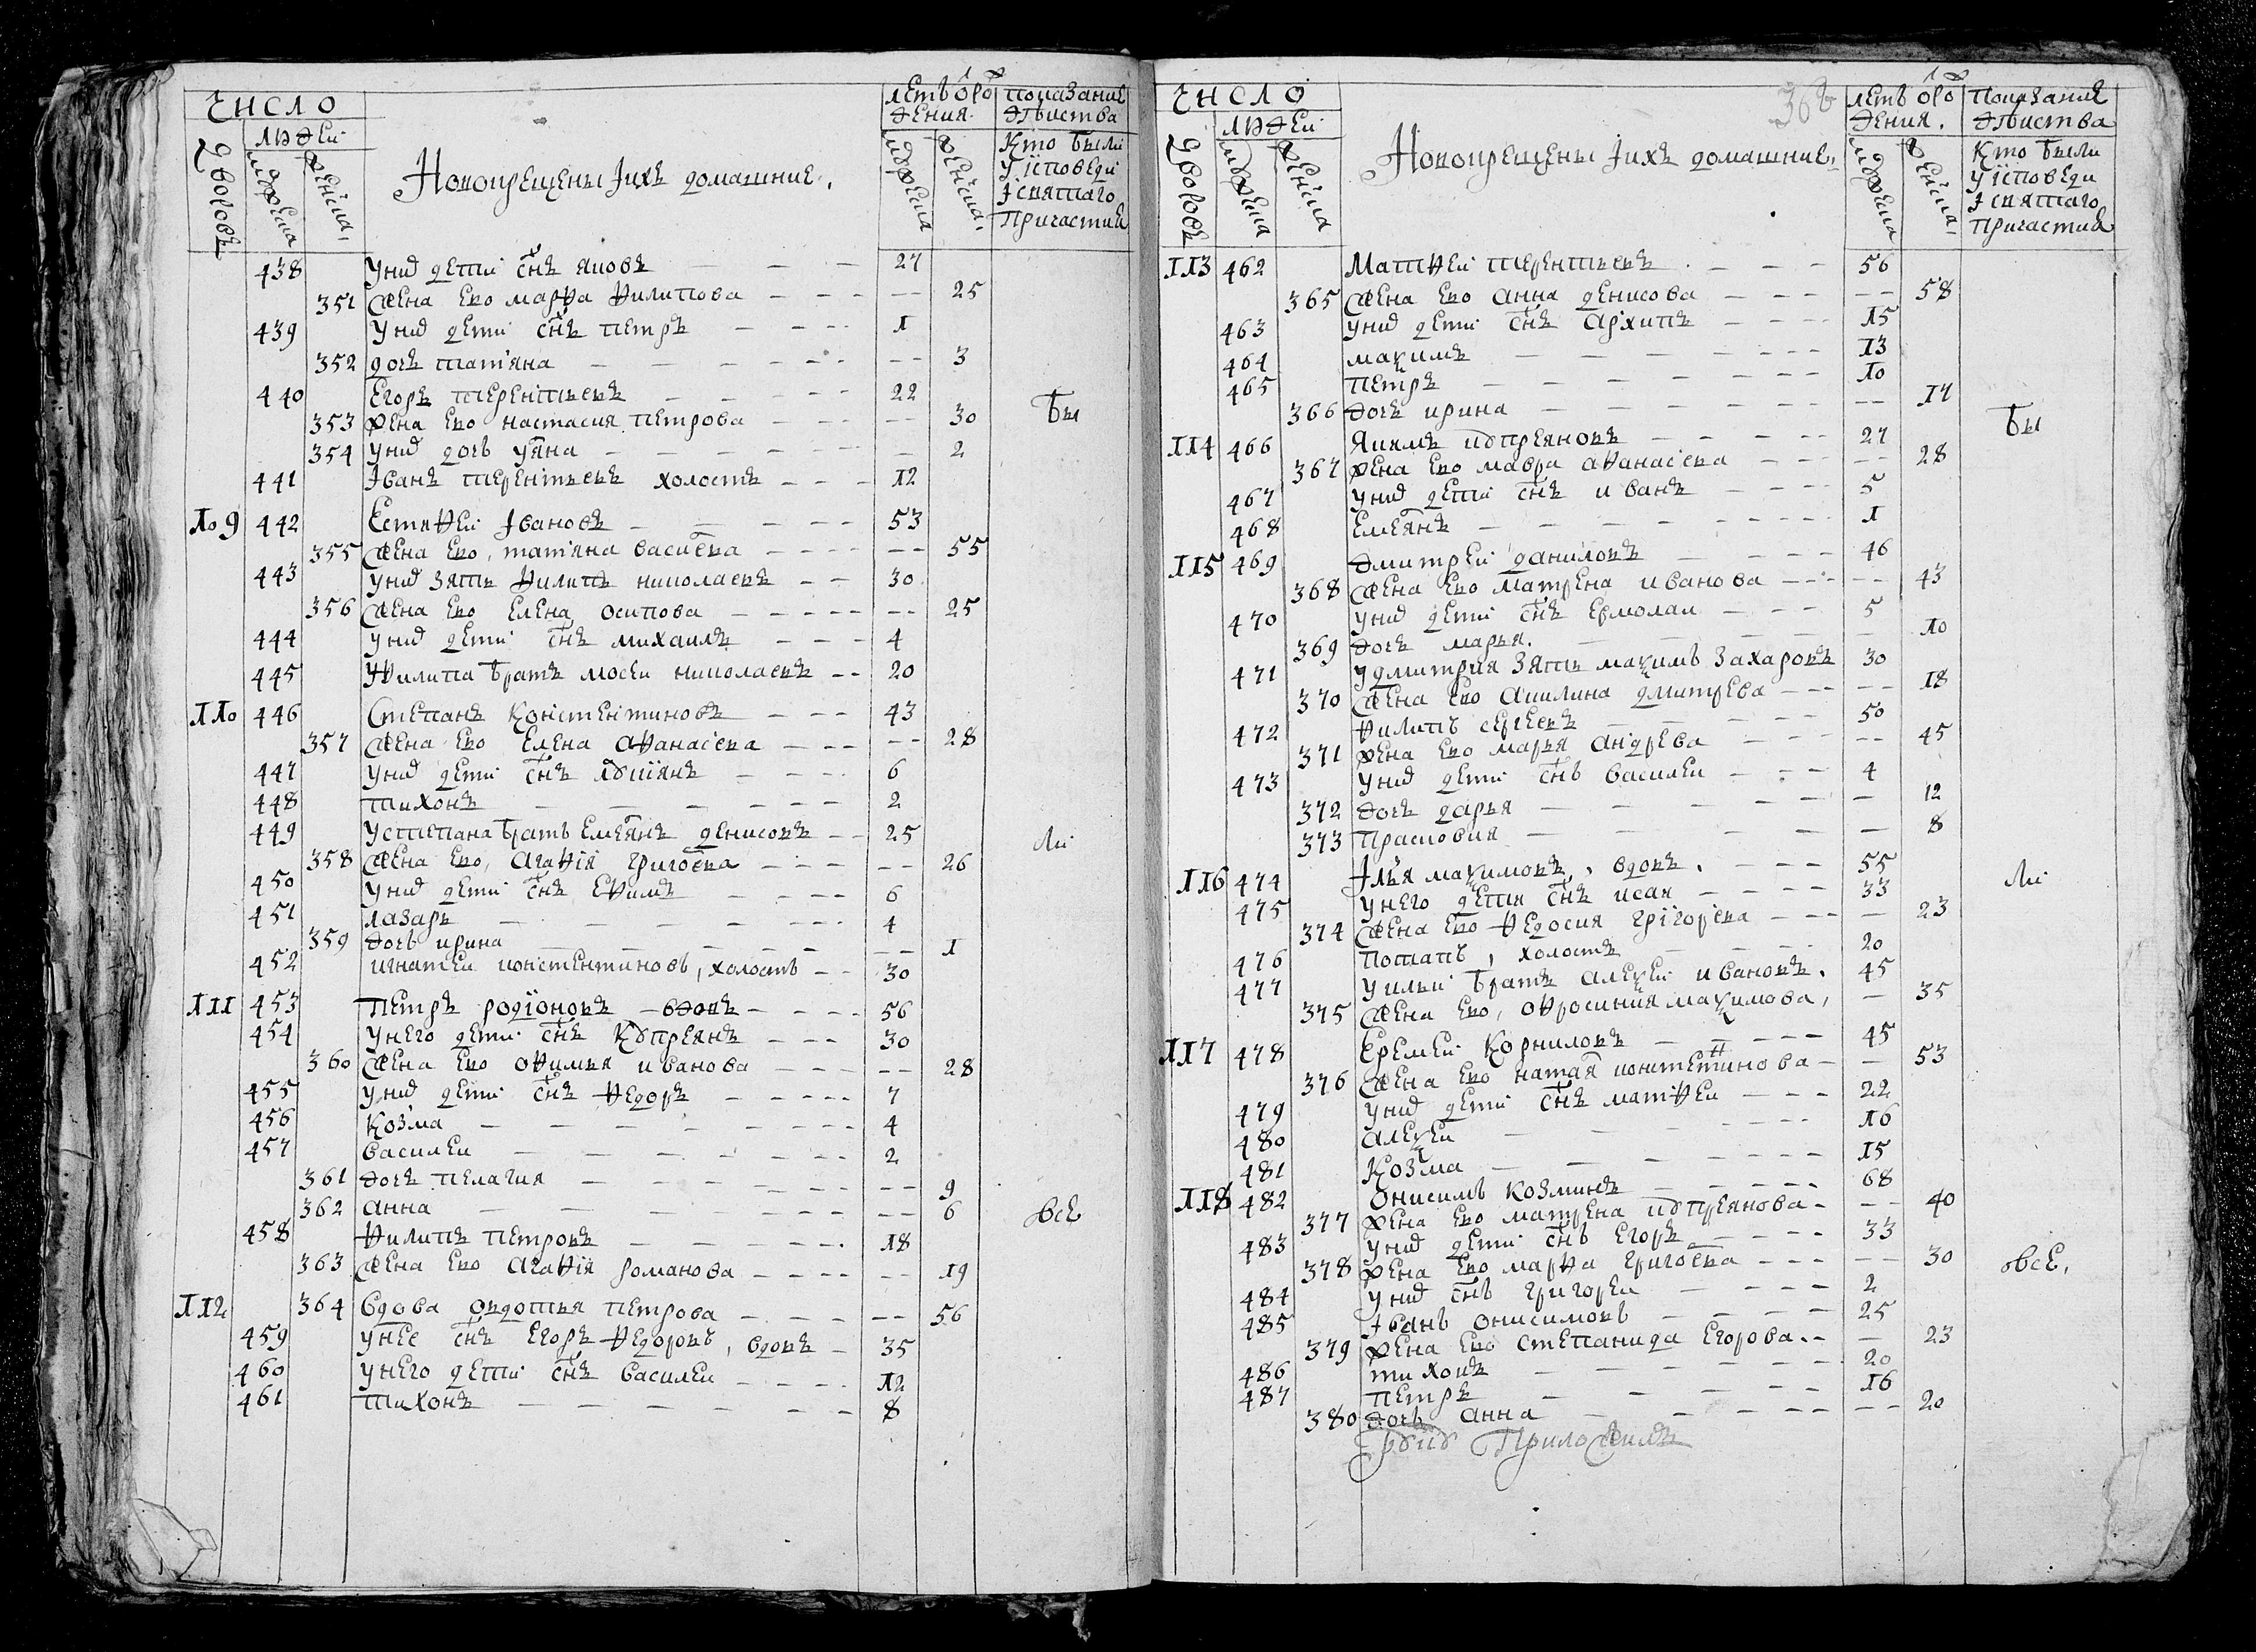 число
дворовъ
людей
мужеска
женска
Новокрещены iихъ домашние.
летъ от рож
дения.
мужеска
женска
показание
действа
кто были
у исповеди
i святаго
причастия
438 униХ дети снъ яковъ — 27
351 жена ево марfа fилипова — 25
439 униХ дети снъ петръ — 1
352 дочь татiяна — 3
440 Егоръ терентьевъ — 22
353 жена ево настасия петрова — 30
354 униХ дочь уяна — 2
441 Iванъ терентьевъ холостъ — 12
109 442 Естифеи Iвановъ — 53
355 жена ево, татiяна васиева — 55
443 униХ зять филипъ николаевъ — 30
356 жена ево Елена осипова — 25
444 униХ дети снъ михаилъ — 4
445 У филипа братъ мосеи николаевъ — 20
110 446 Степанъ констентиновъ — 43
357 жена ево Елена афанасiева — 28
447 униХ дети снъ — 6
448 тихонъ — 2
449 У степана братъ Емеянъ денисовъ — 25
358 жена ево, агаfiя григоева — 26
450 униХ дети снъ Ефимъ — 6
451 лазарь — 4
359 дочь ирина — 1
452 игнатеи констентиновъ, холостъ — 30
111 453 Петръ родiоновъ — вдовъ — 56
454 унего дети снъ купреянъ — 30
360 жена ево офимья иванова — 28
455 униХ дети снъ федоръ — 7
456 козма — 4
457 василеи — 2
361 дочь пелагия — 9
362 анна — 6
458 филипъ петровъ — 18
363 жена ево агаfiя романова — 19
112 364 вдова овдотья петрова — 56
459 унее снъ Егоръ федоровъ, вдовъ — 35
460 унего дети снъ василеи — 12
461 тихонъ — 8
бы
ли
все
число
дворовъ
людей
мужеска
женска
Новокрещены iихъ домашние.
368
летъ от рож
дения.
мужеска
женска
показание
действа
кто были
у исповеди
i святаго
причастия
113 462 Матфеи терентьевъ — 56
365 жена ево анна денисова — 58
463 униХ дети снъ архипъ — 15
464 максимъ — 13
465 петръ — 10
366 дочь ирина — 17
114 466 Якимъ купреяновъ — 27
367 жена ево мавра афанасiева — 28
467 униХ дети снъ иванъ — 5
468 Емеянъ — 1
115 469 Дмитреи даниловъ — 46
368 жена ево матрена иванова — 43
470 униХ дети снъ Ермолаи — 5
369 дочь марья. — 10
471 У дмитрия зять максимъ захаровъ 30
370 жена ево акилина дмитрева — 18
472 филипъ сергеевъ — 50
371 жена ево марья андрева — 45
473 униХ дети снъ василеи — 4
372 дочь дарья — 12
373 прасковия — 8
116 474 Iлья максимовъ, вдовъ. — 55
475 унего дети снъ исая — 33
374 жена ево федосия григорiева — 23
476 потапъ, холостъ — 20
477 у ильи братъ алексеи ивановъ. 45
375 жена ево, офросиния максимова, — 35
117 478 Еремеи корниловъ — 45
376 жена ево натая констентинова — 53
479 униХ дети снъ матfеи — 22
480 алексеи — 16
481 козма — 15
118 482 Онисимъ козминъ — 68
377 жена ево матрена купреянова — 40
483 униХ дети снъ Егоръ — 33
378 жена ево марfа григоева — 30
484 униХ снъ григореи — 2
485 Iванъ онисимовъ — 25
379 жена ево степанида Егорова — 23
486 тихонъ — 20
487 петръ — 16
380 дочь анна — 20
руку приложилъ
бы
ли
все,